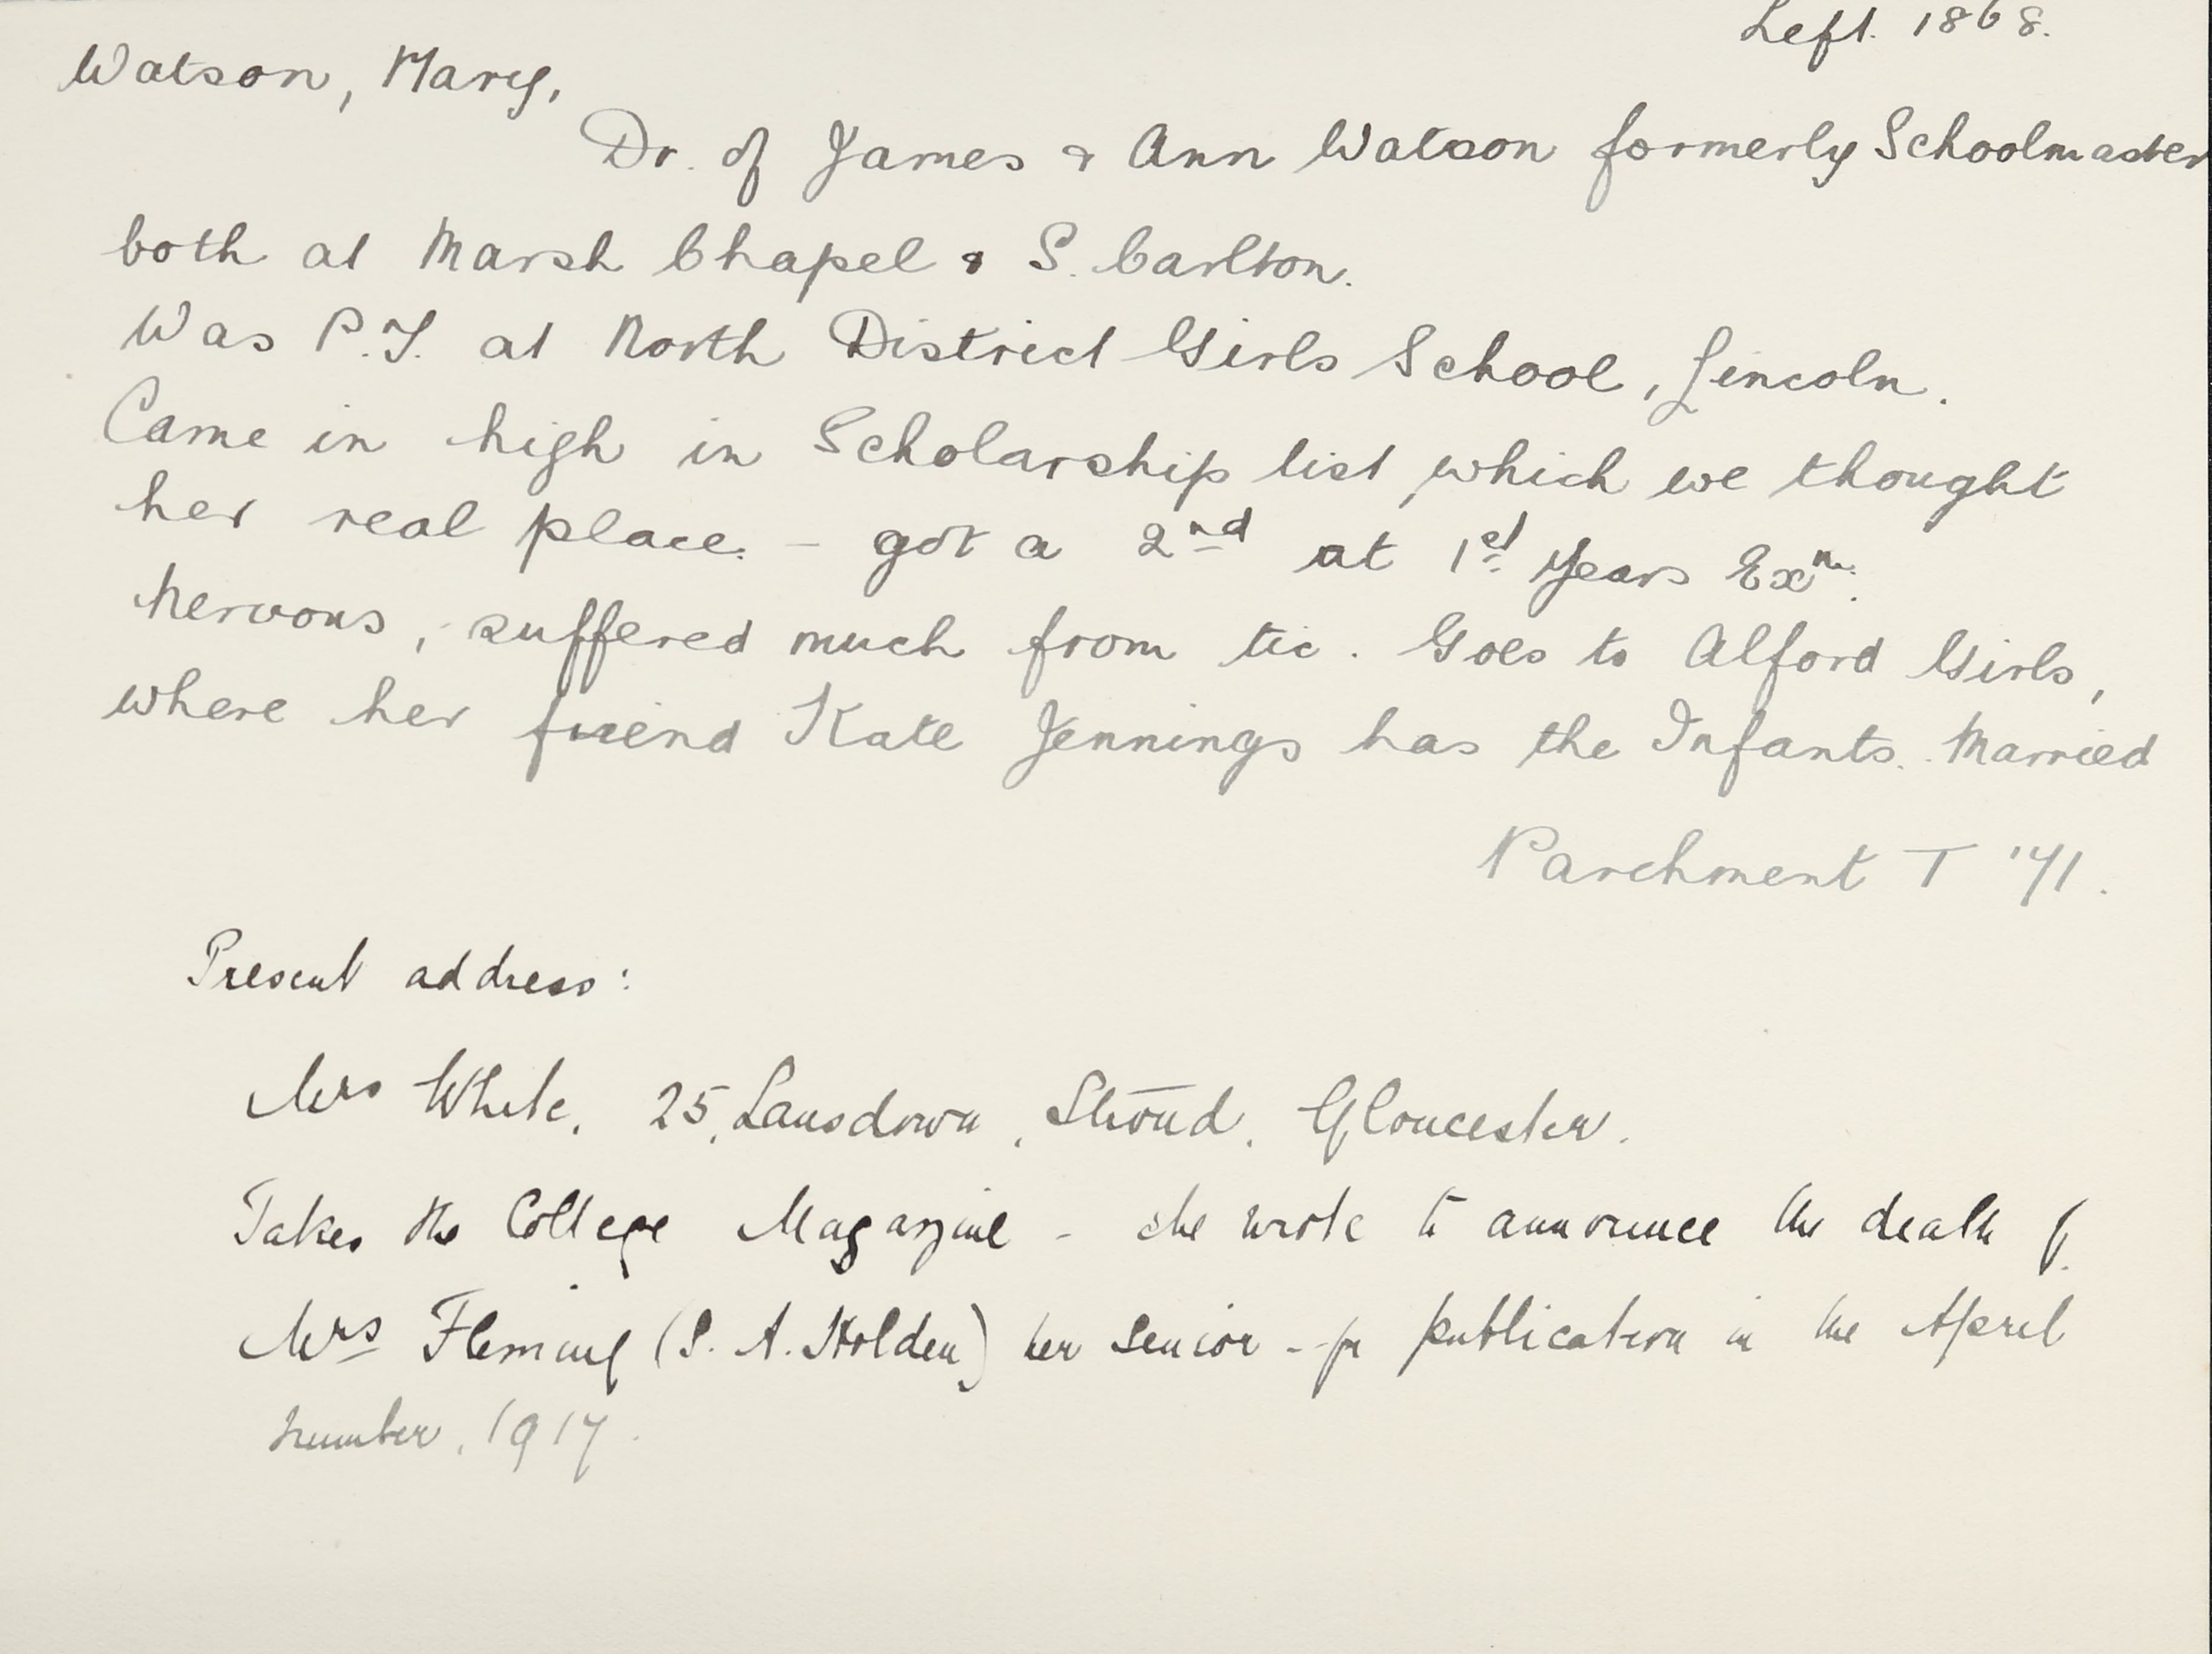 Left. 1868.
Watson, Mary,
Dr. of James & Ann Watson formerly Schoolmaster
both at Marsh Chapel & S. Carlton.
Was P.T. at North District Girls School, Lincoln.
Came in high in Scholarship list, which we thought
her real place. - got a 2nd at 1st Years Exn.
nervous, suffered much from tic. Goes to Alford Girls,
where her friend Kate Jennings has the Infants. Married
Parchment T '71.
Present address:
Mrs White, 25, Lansdown, Stroud, Gloucester.
Takes the College Magazine - she wrote to announce the death of
Mrs Fleming (S. A. Holden) her senior - for publication in the April
number, 1917.